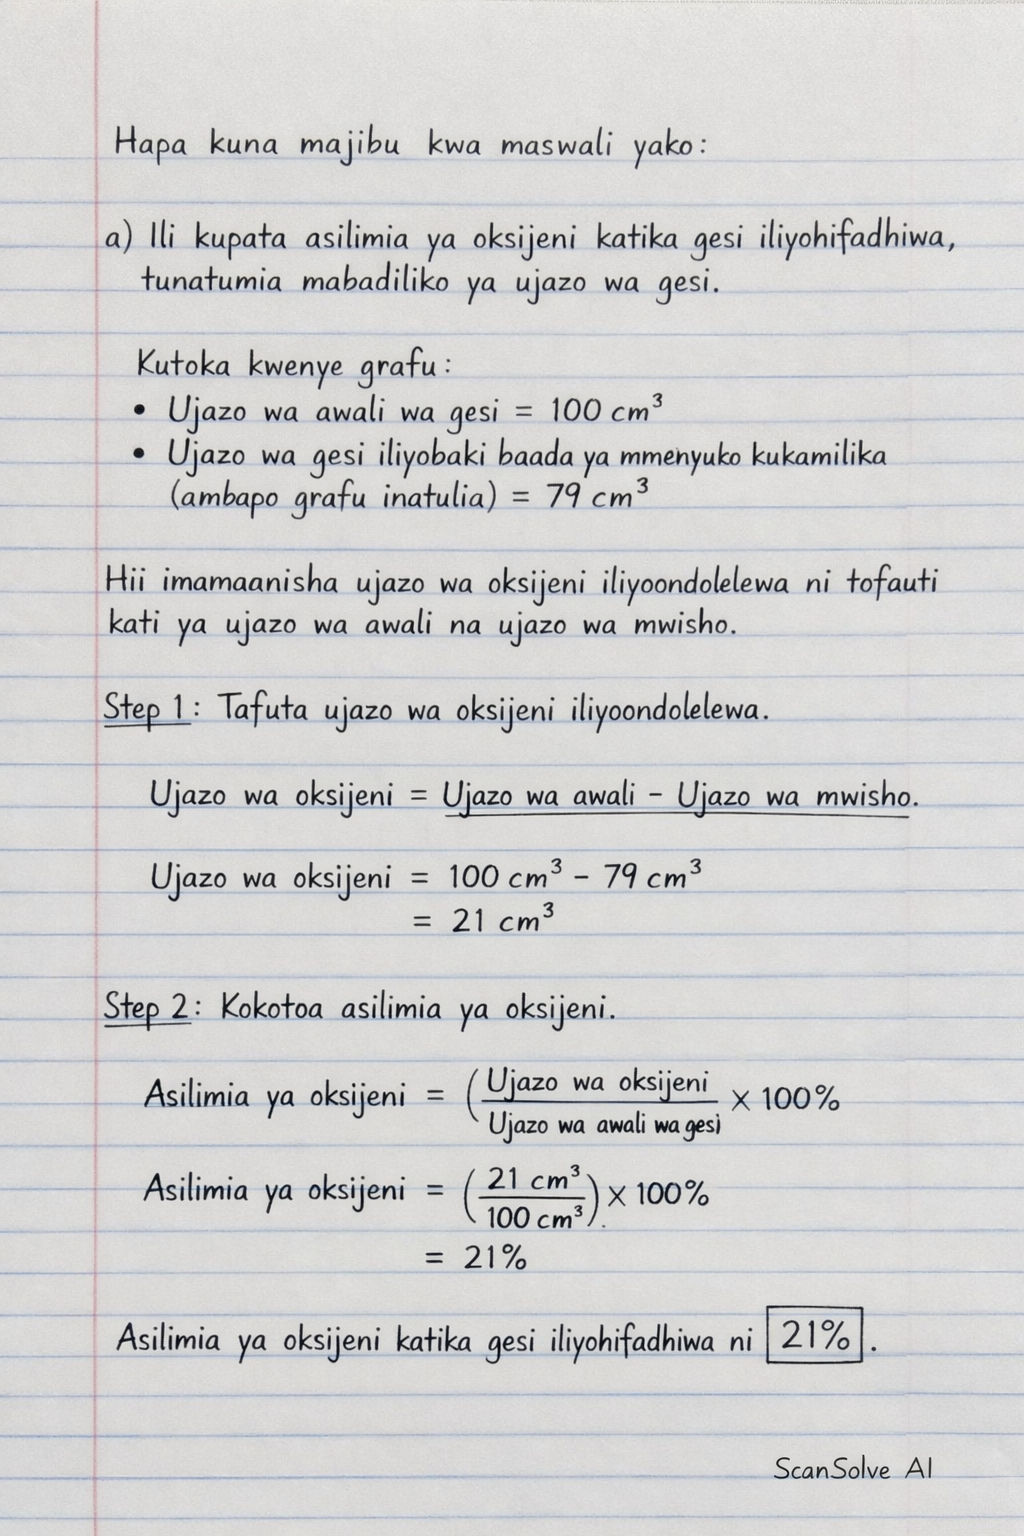 Hapa kuna majibu kwa maswali yako:
a) Ili kupata asilimia ya oksijeni katika gesi iliyohifadhiwa,
tunatumia mabadiliko ya ujazo wa gesi.
Kutoka kwenye grafu:
• Ujazo wa awali wa gesi = 100 cm³
• Ujazo wa gesi iliyobaki baada ya mmenyuko kukamilika
(ambapo grafu inatulia) = 79 cm³
Hii imamaanisha ujazo wa oksijeni iliyoondolelewa ni tofauti
kati ya ujazo wa awali na ujazo wa mwisho.
Step 1: Tafuta ujazo wa oksijeni iliyoondolelewa.
Ujazo wa oksijeni = Ujazo wa awali - Ujazo wa mwisho.
Ujazo wa oksijeni = 100 cm³ - 79 cm³
= 21 cm³
Step 2: Kokotoa asilimia ya oksijeni.
Asilimia ya oksijeni = (Ujazo wa oksijeni / Ujazo wa awali wa gesi × 100%
Asilimia ya oksijeni = (21 cm³ / 100 cm³) × 100%
= 21%
Asilimia ya oksijeni katika gesi iliyohifadhiwa ni 21%.
ScanSolve AI